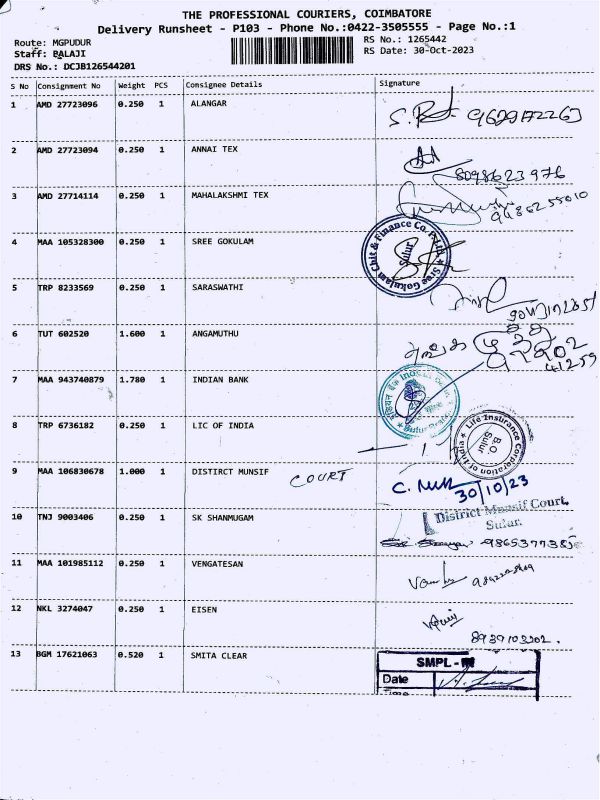 THE PROFESSIONAL COURIERS, COIMBATORE
Delivery Runsheet - P103 - Phone No.:0422-3505555 - Page No.:1
Route: MGPUDUR
RS No.: 1265442
Staff: BALAJI
RS Date: 30-Oct-2023
DRS No.: DCJB126544201
S No Consignment No Weight PCS Consignee Details Signature
1 AMD 27723096 0.250 1 ALANGAR
2 AMD 27723094 0.250 1 ANNAI TEX
8098623976
3 AMD 27714114 0.250 1 MAHALAKSHMI TEX
9486255010
4 MAA 105328300 0.250 1 SREE GOKULAM
Sree Gokulam Chit & Finance Co. P. Ltd.
Sulur
5 TRP 8233569 0.250 1 SARASWATHI
6 TUT 602520 1.600 1 ANGAMUTHU
41259
7 MAA 943740879 1.780 1 INDIAN BANK
8 TRP 6736182 0.250 1 LIC OF INDIA
Life Insurance Corporation of India
B.O.
Sulur
9 MAA 106830678 1.000 1 DISTIRCT MUNSIF COURT
30/10/23
District Munsif Court,
Sulur.
10 TNJ 9003406 0.250 1 SK SHANMUGAM
9865377385
11 MAA 101985112 0.250 1 VENGATESAN
12 NKL 3274047 0.250 1 EISEN
8939103302.
13 BGM 17621063 0.520 1 SMITA CLEAR
SMPL -
Date